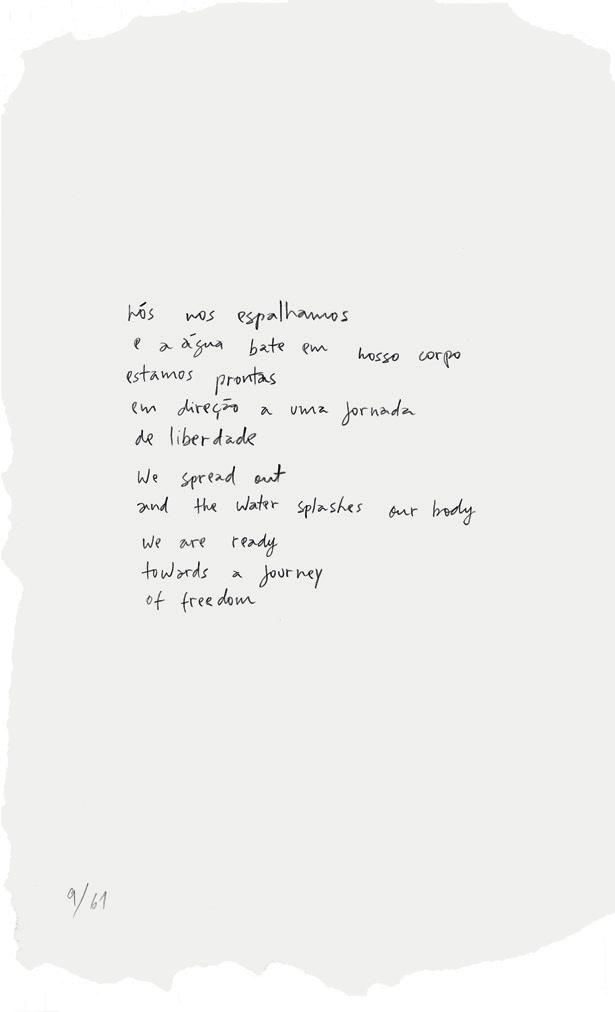 nós nos espalhamos
e a água bate em nosso corpo
estamos prontas
em direção a uma jornada
de liberdade
We spread out
and the water splashes our body
we are ready
towards a journey
of freedom
9/61